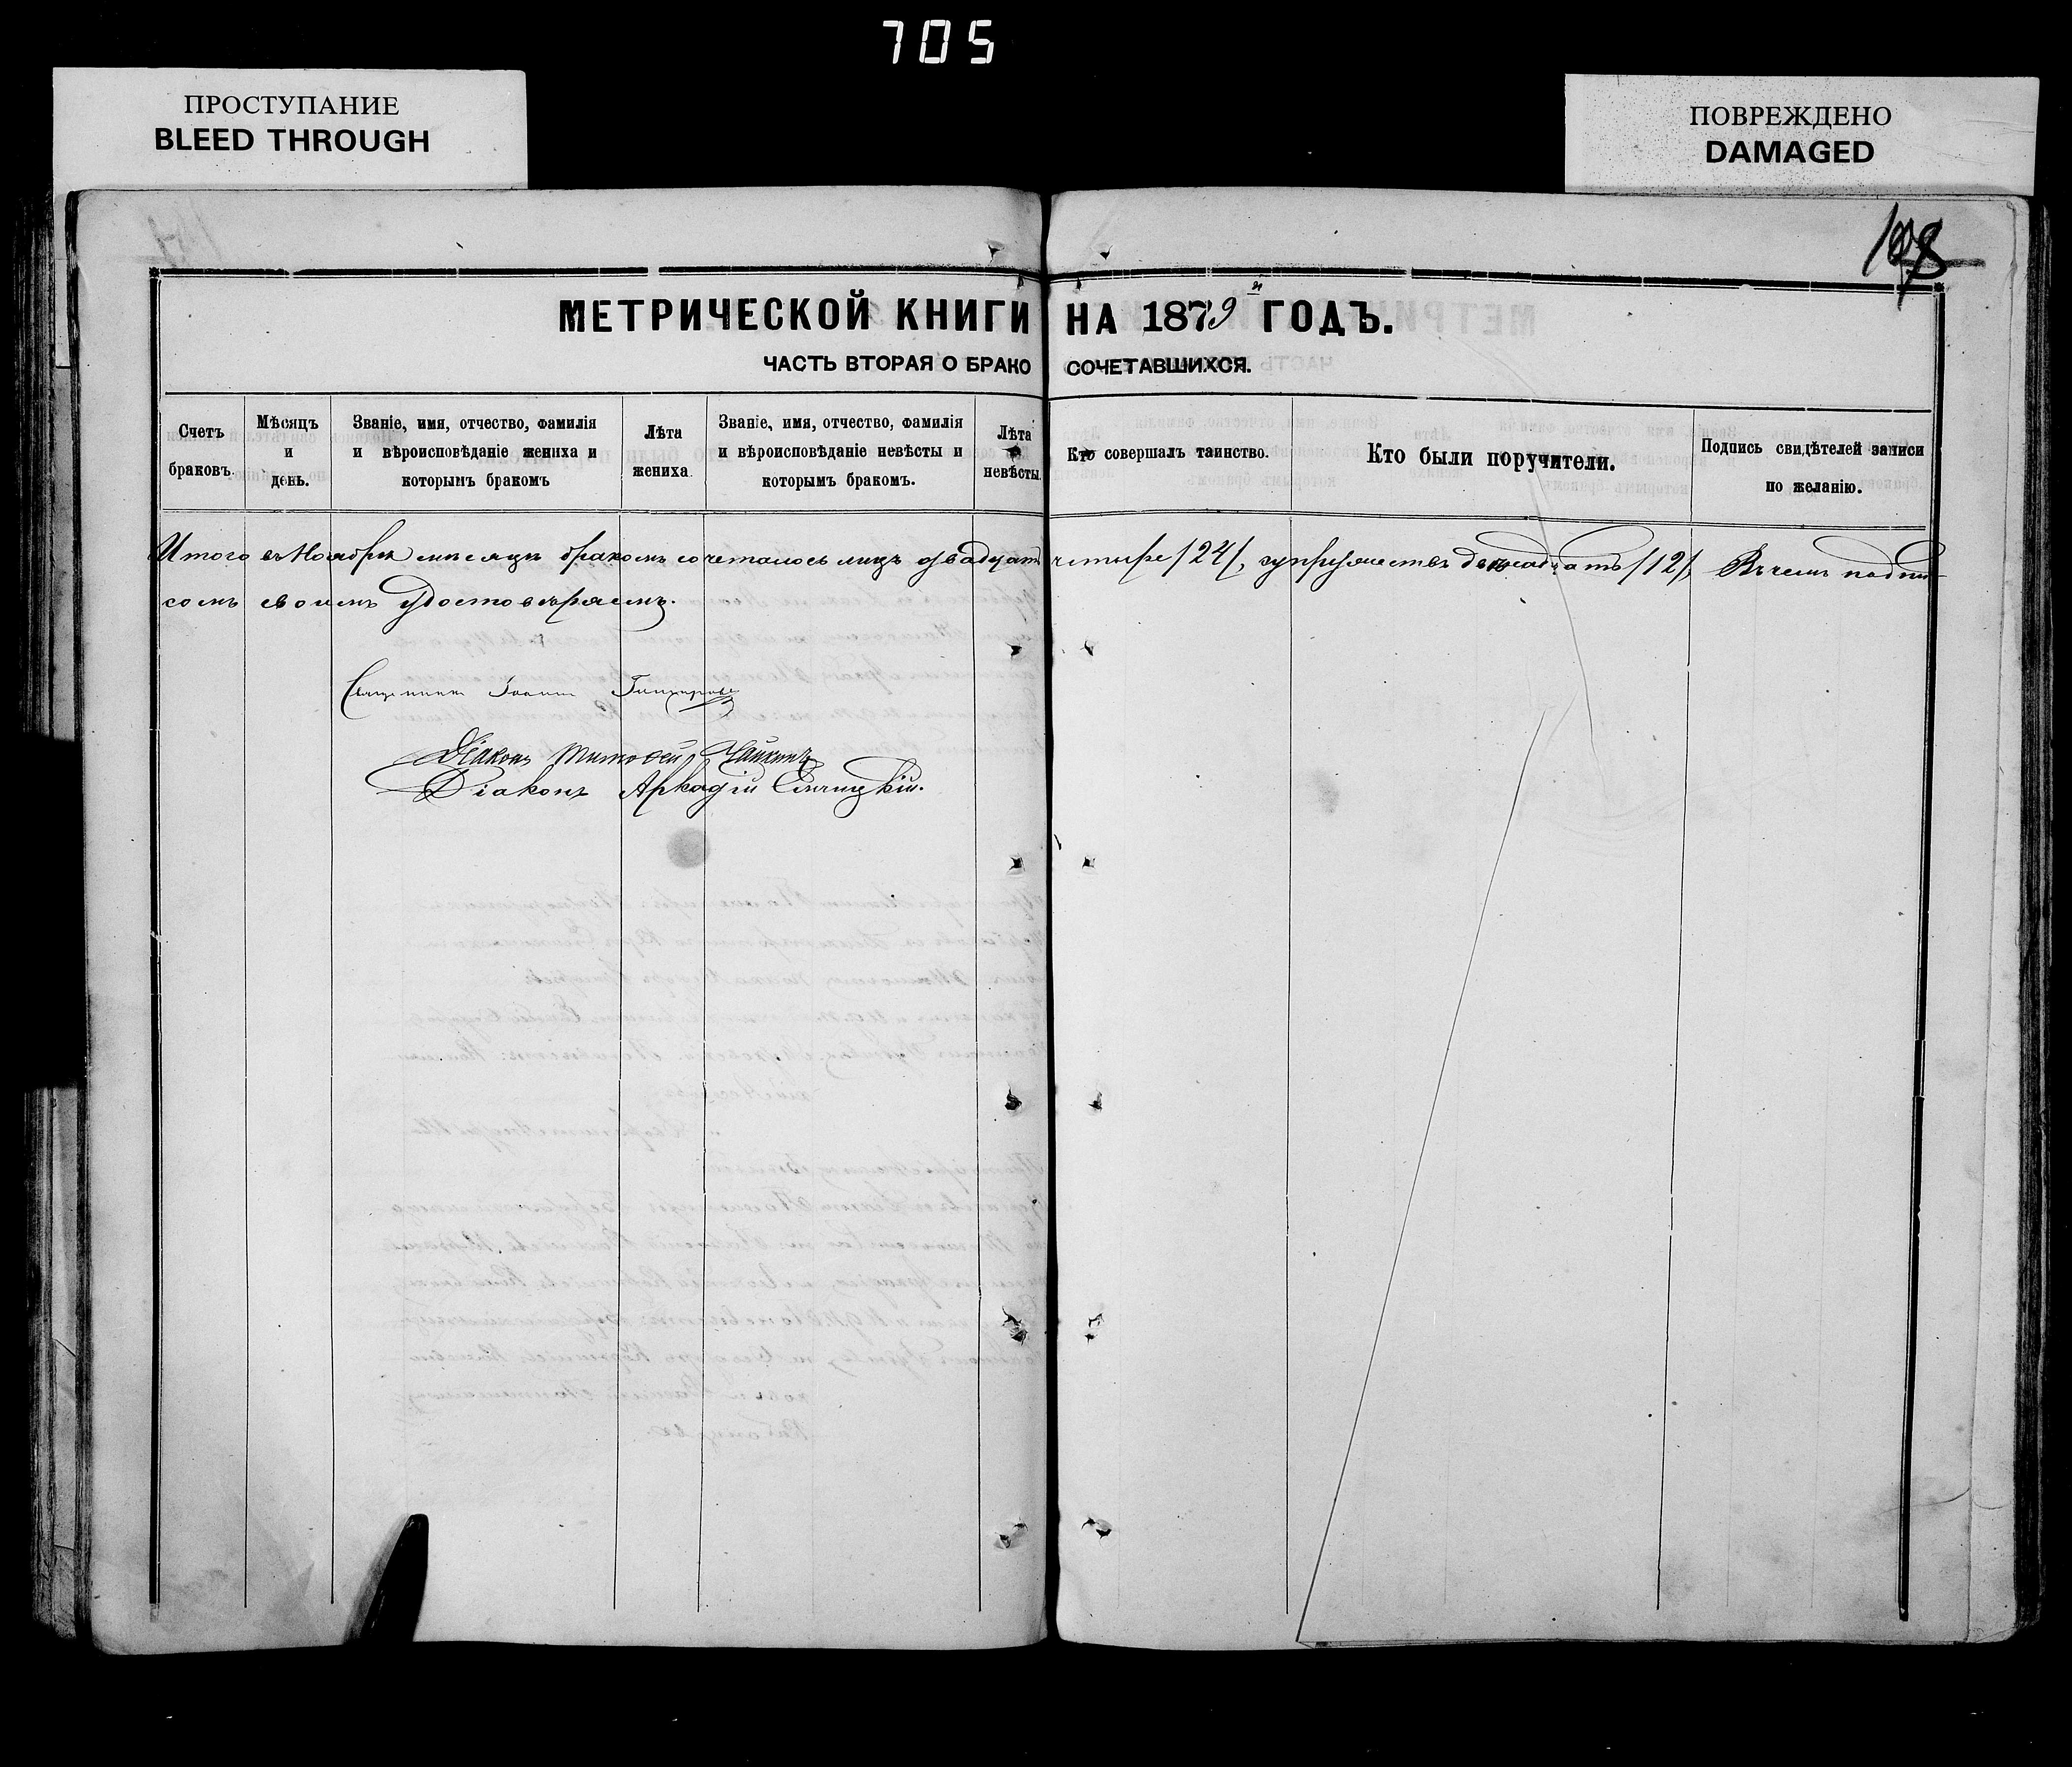 705
ПРОСТУПАНИЕ
BLEED THROUGH
ПОВРЕЖДЕНО
DAMAGED
МЕТРИЧЕСКОЙ КНИГИ НА 1879й ГОДЪ.
ЧАСТЬ ВТОРАЯ О БРАКОСОЧЕТАВШИХСЯ.
Счетъ браковъ.
Мѣсяцъ и день.
Званіе, имя, отчество, фамилія и вѣроисповѣданіе жениха и которымъ бракомъ
Лѣта жениха.
Званіе, имя, отчество, фамилія и вѣроисповѣданіе невѣсты и которымъ бракомъ.
Лѣта невѣсты.
Кто совершалъ таинство.
Кто были поручители.
Подпись свидѣтелей записи по желанію.
Итого въ Ноябрѣ мѣсяцѣ бракомъ сочеталось лицъ двадцать четыре /24/, супружествъ двенадцать /12/, Въ чемъ подпи-
сомъ своимъ удостовѣряемъ.
Священникъ Іоаннъ
Діаконъ Тимофей
Діаконъ Аркадій